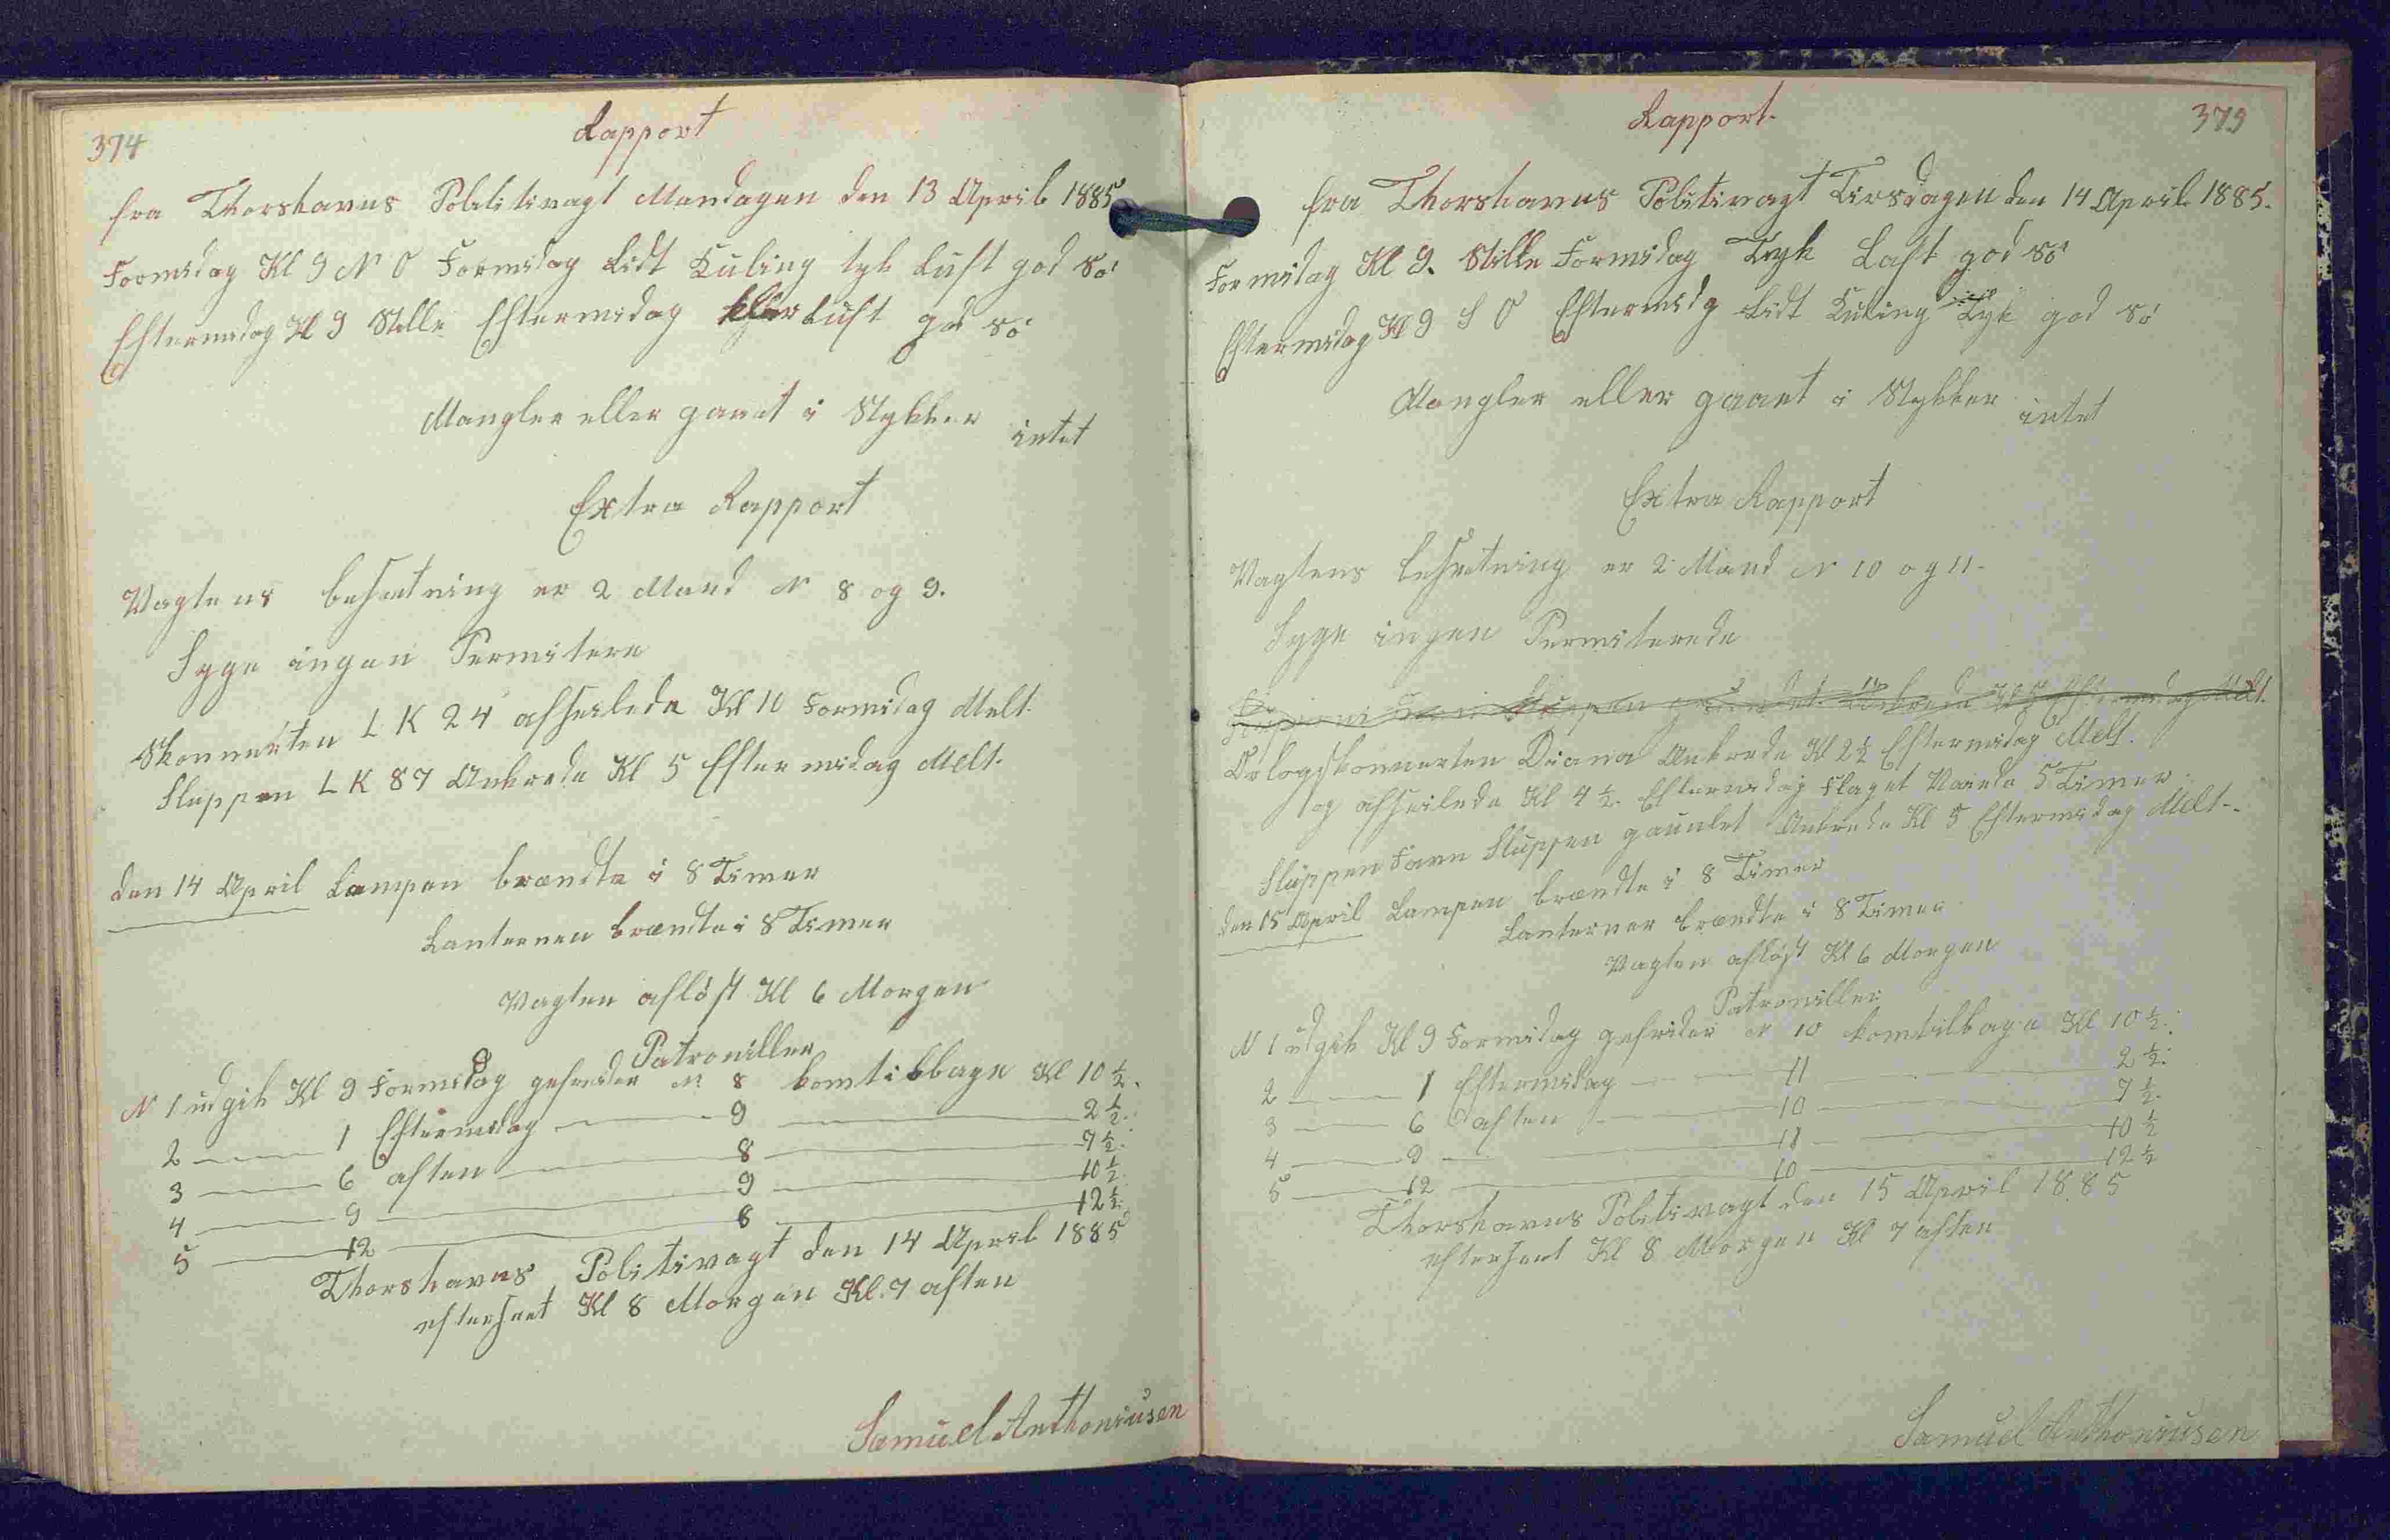 374
Rapport
fra Thorshavns Politivagt Mandagen den 13 April 1885
Formidag Kl 9 N O Formidag Lidt Kuling tyk Luft god Sø
Eftermidag Kl 9 Stille Eftermidag klar Luft god Sø
Mangler eller gaaet i Stykker intet
Extra Rapport
Vagtens besætning er 2 Mand N 8 og 9.
Syge ingen Permitere
Skonnerten L K 24 afseilede Kl 10 Formidag Melt.
Sluppen L K 87 Ankrede Kl 5 Eftermidag Melt.
den 14 April Lampen brændte i 8 Timer
Lanternen brændte i 8 Timer
Vagten afløst Kl 6 Morgen
Patrouiller
N 1 udgik Kl 9 Formidag gefreider N 8 kom tilbage Kl 10 ½.
2 — 1 Eftermidag — 9 — 2 ½.
3 — 6 aften — 8 — 7 ½.
4 — 9 — 9 — 10 ½.
5 — 12 — 8 — 12 ½.
Thorshavns Politivagt den 14 April 1885
efterseet Kl 8 Morgen Kl. 7 aften
Samuel Anthoniusen
379
Rapport.
fra Thorshavns Politivagt Tirsdagen den 14 April 1885.
Formidag Kl 9. Stille Formidag Tyk Luft god Sø
Eftermidag Kl 9 S O Eftermidg Lidt Kuling Tyk god Sø
Mangler eller gaaet i Stykker intet
Extra Rapport
Vagtens besætning er 2 Mand N 10 og 11.
Syge ingen Permiterede
Ankrede Kl 5 Eftermidag Melt.
Orlogskonnerten Diana Ankrede Kl 2 ½ Eftermidag Melt.
og afseilede Kl 4 ½. Eftermidag Flaget Vaiede 5 Timer.
Sluppen Favn Sluppen gauntlet Ankrede Kl 5 Eftermidag Melt.
den 15 April Lampen brændte i 8 Timer
Lanterner brændte i 8 Timer
Vagten afløst Kl 6 Morgen
Patrouiller
N 1 udgik Kl 9 Formidag gefreider N 10 kom tilbage Kl 10 ½.
2 — 1 Eftermidag — 11 — 2 ½.
3 — 6 aften — 10 — 7 ½.
4 — 9 — 11 — 10 ½
5 — 12 — 10 — 12 ½
Thorshavns Politivagt den 15 April 1885
efterseet Kl 8 Morgen Kl 7 aften
Samuel Anthoniusen